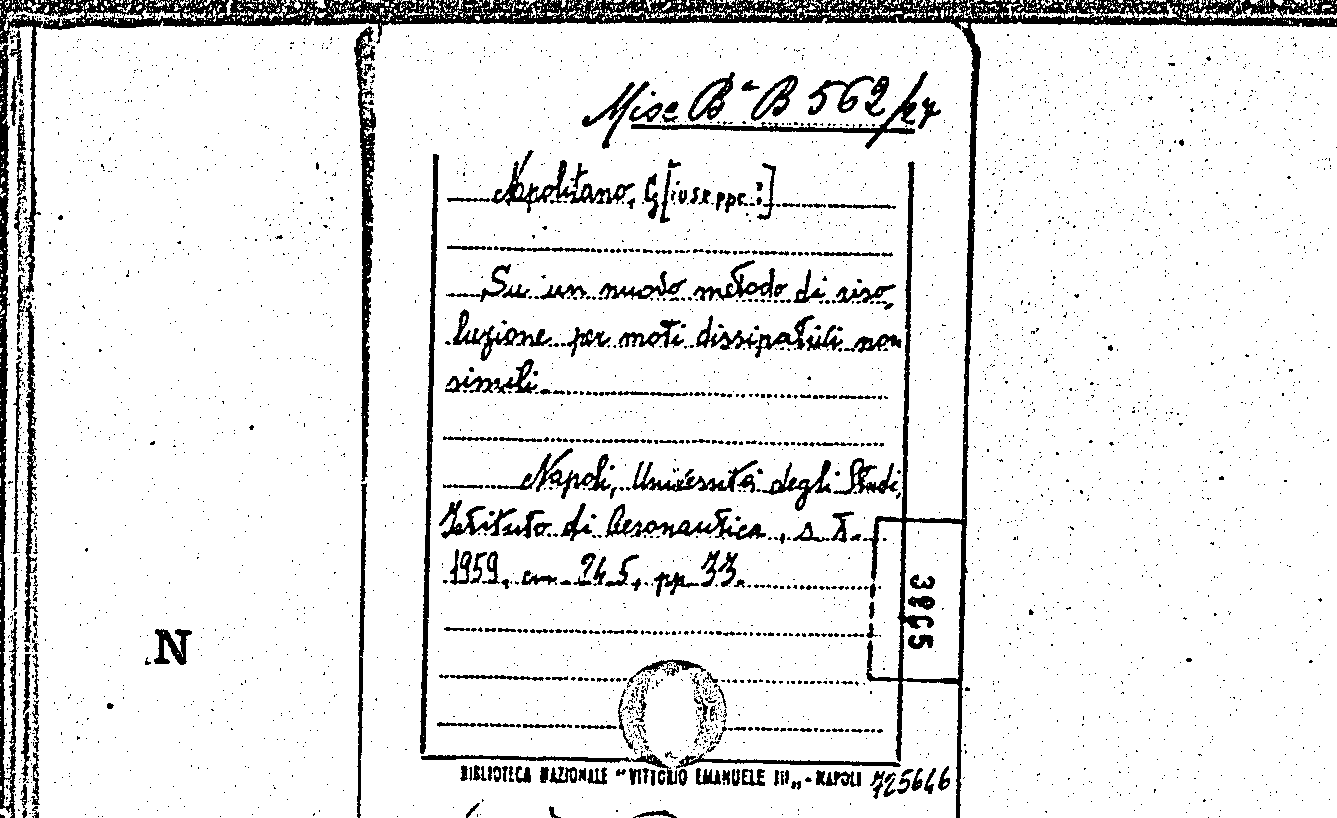 Misc Bᵃ B 562/27
Napolitano, G[iuseppe?]
Su un nuovo metodo di riso,
luzione per moti dissipativi non
simili.
Napoli, Università degli Studi,
Istituto di Aeronautica, s. t.
1959, cm. 24.5, pp. 33.
N
BIBLIOTECA NAZIONALE "VITTORIO EMANUELE III„ - NAPOLI 725646